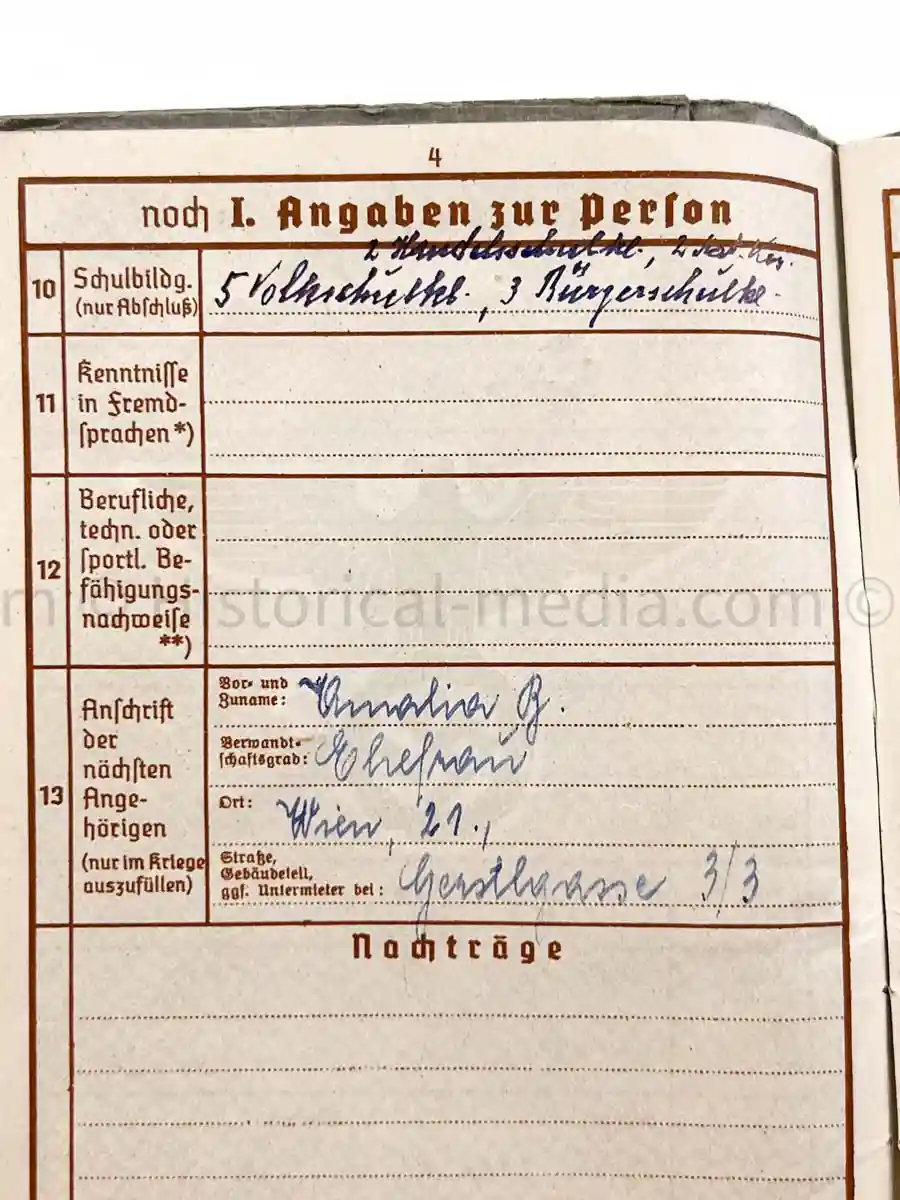 4
noch I. Angaben zur Person
10 Schulbildg. (nur Abschluß)
2 Handelsschulkl., 2
5 Volkschulkl., 3 Bürgerschulkl.
11 Kenntnisse in Fremd-
sprachen *)
12 Berufliche,
techn. oder
sportl. Be-
fähigungs-
nachweise
**)
13 Anschrift
der
nächsten
Ange-
hörigen
(nur im Kriege
auszufüllen)
Vor- und
Zuname: Amalia B.
Verwandt-
schaftsgrad: Ehefrau
Ort: Wien, 21.,
Straße,
Gebäudeteil,
ggf. Untermieter bei: Gerstlgasse 3/3
Nachträge
historical-media.com ©